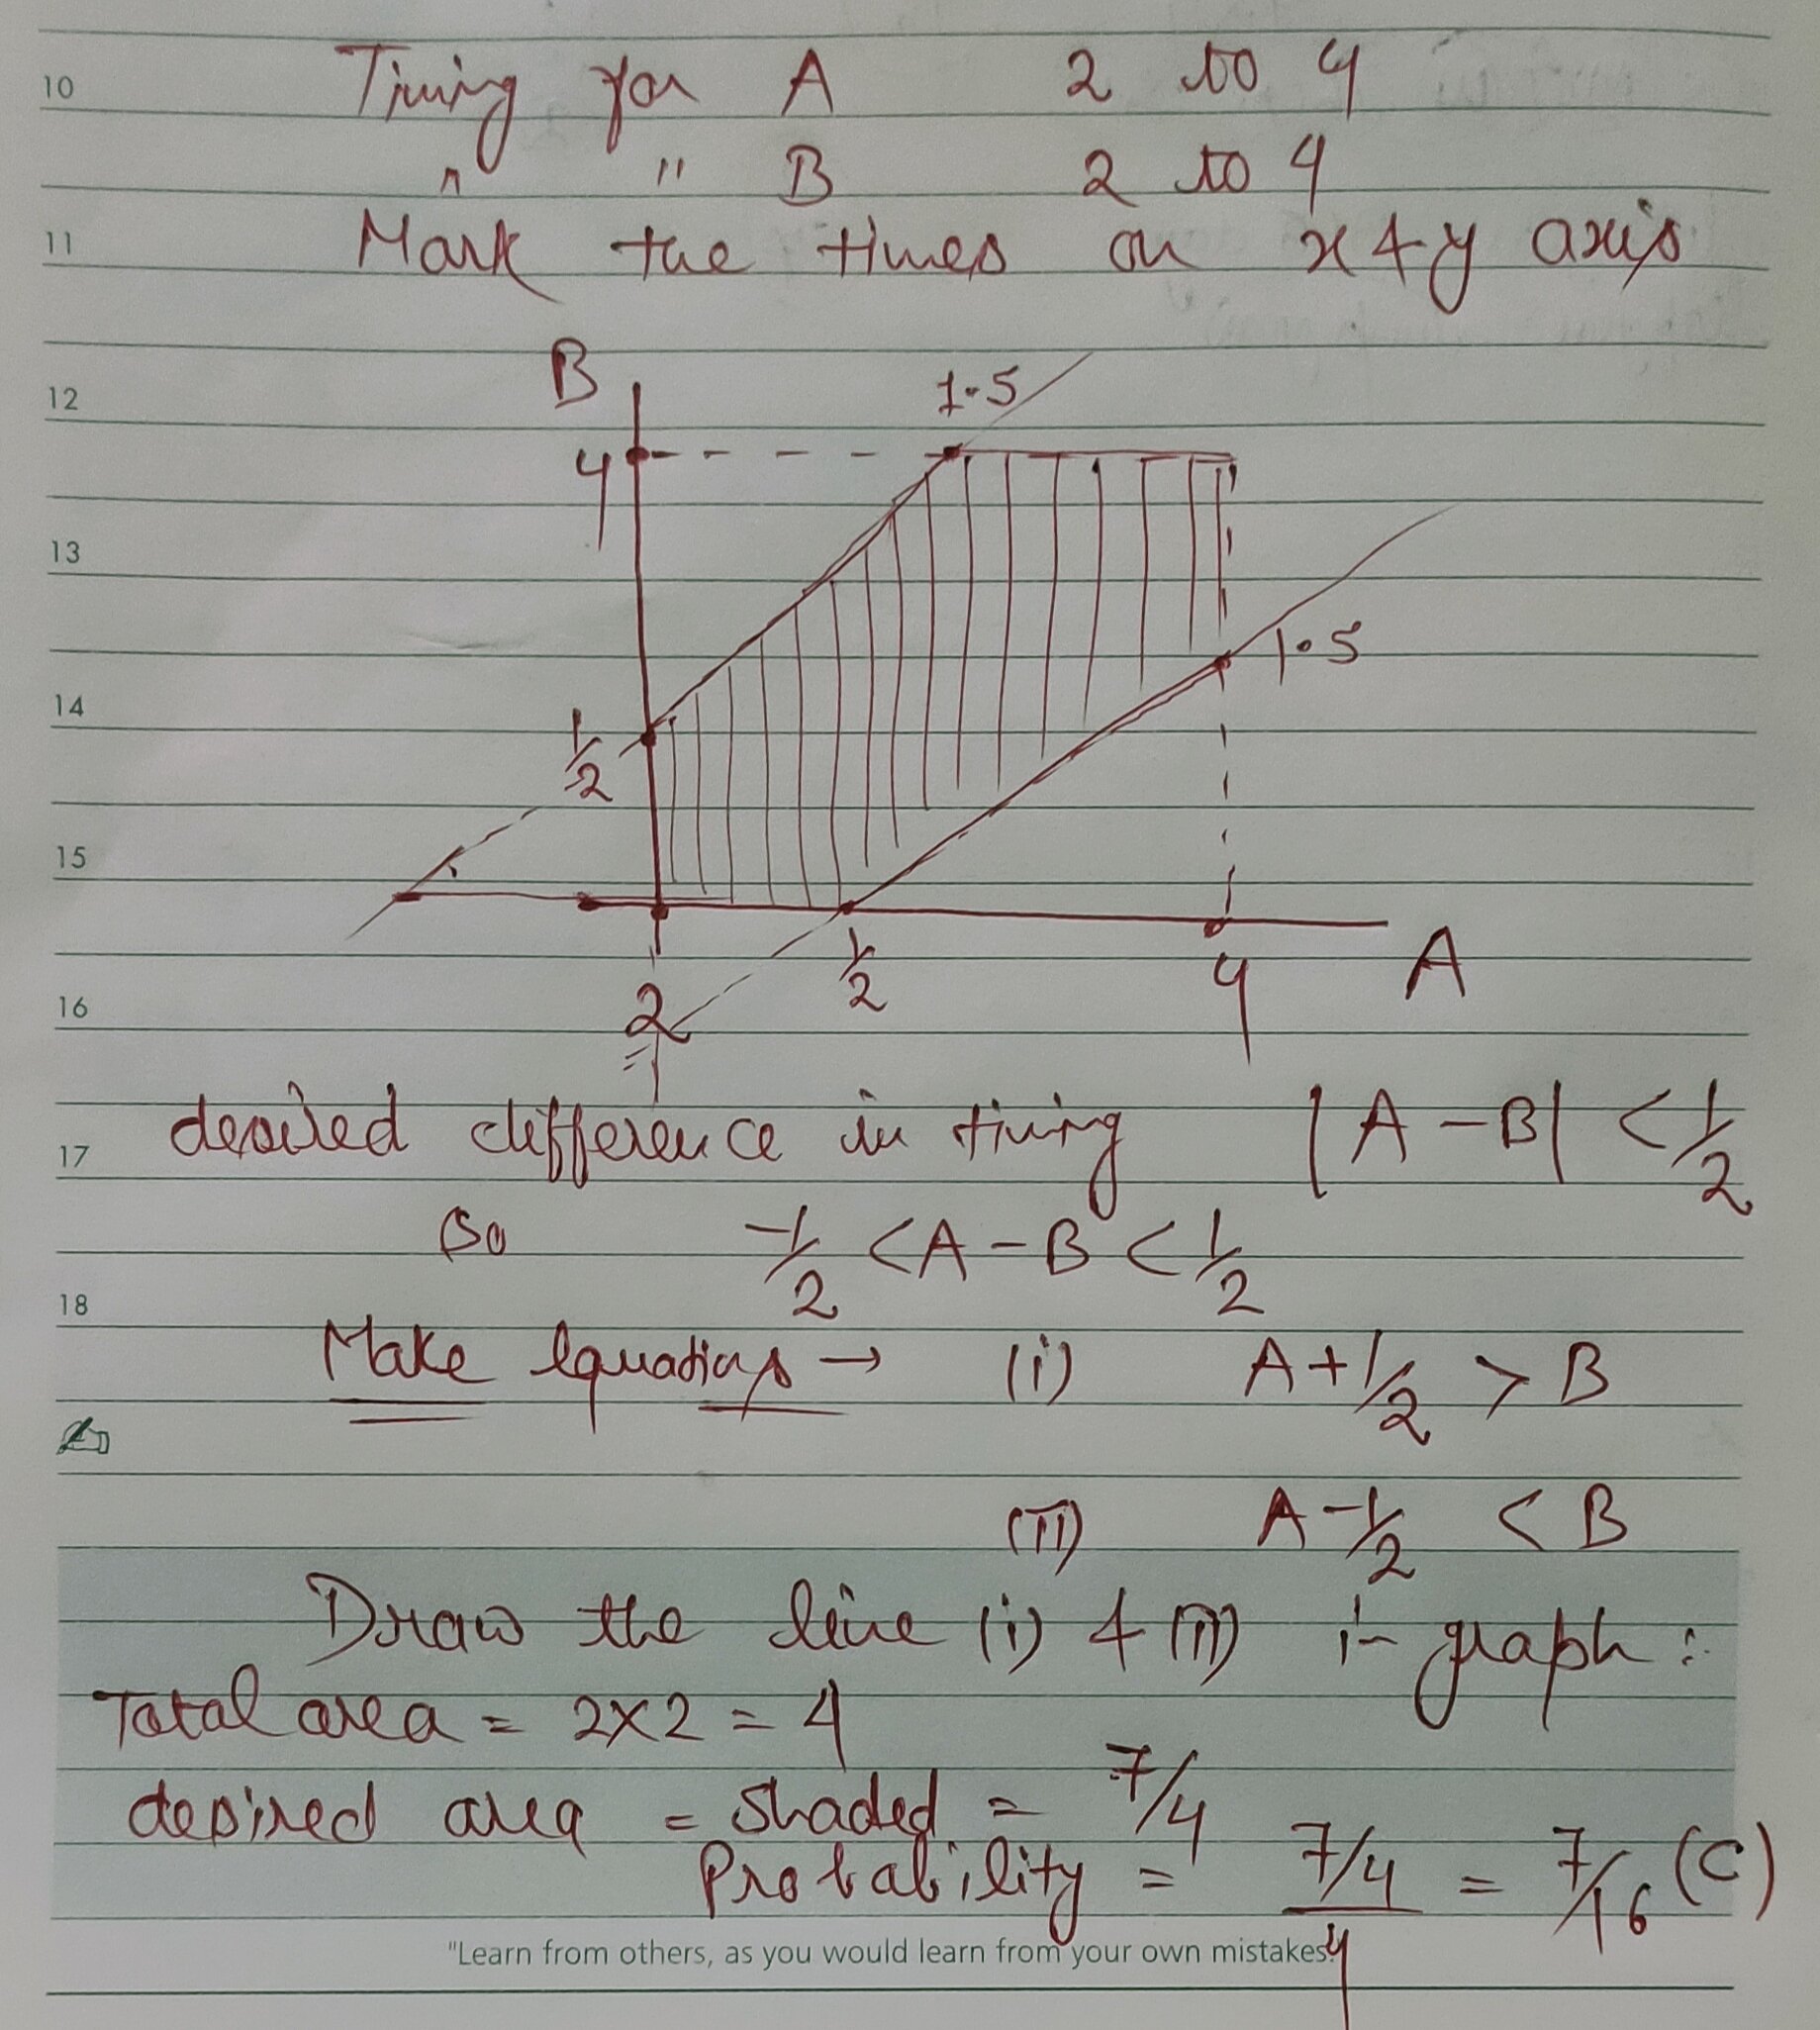 10 Timing for A 2 to 4
" " B 2 to 4
11 Mark the times on x & y axis
B
12 1.5
4
13
1.5
14
1/2
15
1/2 4 A
16 2
desired difference in timing |A - B| < 1/2
17
so -1/2 < A - B < 1/2
18
Make equations → (i) A + 1/2 > B
(ii) A - 1/2 < B
Draw the line (i) & (ii) in graph :
Total area = 2x2 = 4
desired area = shaded = 7/4
Probability = 7/4 / 4 = 7/16 (C)
"Learn from others, as you would learn from your own mistakes."